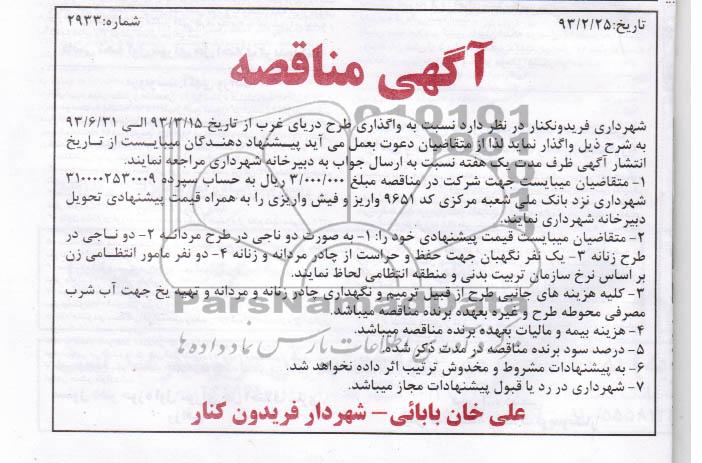 تاریخ:۹۳/۲/۲۵
شماره:۲۹۳۳
آگهی مناقصه
شهرداری فریدونکنار در نظر دارد نسبت به واگذاری طرح دریای غرب از تاریخ ۹۳/۳/۱۵ الی ۹۳/۶/۳۱
به شرح ذیل واگذار نماید لذا از متقاضیان دعوت بعمل می آید پیشنهاد دهندگان میبایست از تاریخ
انتشار آگهی ظرف مدت یک هفته نسبت به ارسال جواب به دبیرخانه شهرداری مراجعه نمایند.
۱- متقاضیان میبایست جهت شرکت در مناقصه مبلغ ۳/۰۰۰/۰۰۰ ریال به حساب سپرده ۳۱۰۰۰۰۲۵۳۰۰۰۹
شهرداری نزد بانک ملی شعبه مرکزی کد ۹۶۵۱ واریز و فیش واریزی را به همراه قیمت پیشنهادی تحویل
دبیرخانه شهرداری نمایند.
۲- متقاضیان میبایست قیمت پیشنهادی خود را: ۱- به صورت دو ناجی در طرح مردانه ۲- دو ناجی در
طرح زنانه ۳- یک نفر نگهبان جهت حفظ و حراست از چادر مردانه و زنانه ۴- دو نفر مامور انتظامی زن
بر اساس نرخ سازمان تربیت بدنی و منطقه انتظامی لحاظ نمایند.
۳- کلیه هزینه های جانبی طرح از قبیل ترمیم و نگهداری چادر زنانه و مردانه و تهیه یخ جهت آب شرب
مصرفی محوطه طرح و غیره بعهده برنده مناقصه میباشد.
۴- هزینه بیمه و مالیات بعهده برنده مناقصه میباشد.
۵- درصد سود برنده مناقصه در مدت ذکر شده.
۶- به پیشنهادات مشروط و مخدوش ترتیب اثر داده نخواهد شد.
۷- شهرداری در رد یا قبول پیشنهادات مجاز میباشد.
علی خان بابائی- شهردار فریدون کنار